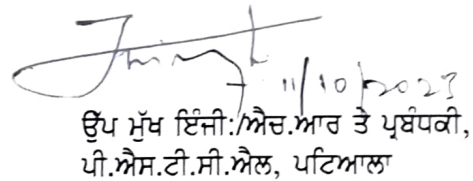 11/10/2023
ਉੱਪ ਮੁੱਖ ਇੰਜੀ:/ਐਚ.ਆਰ ਤੇ ਪ੍ਰਬੰਧਕੀ,
ਪੀ.ਐਸ.ਟੀ.ਸੀ.ਐਲ, ਪਟਿਆਲਾ